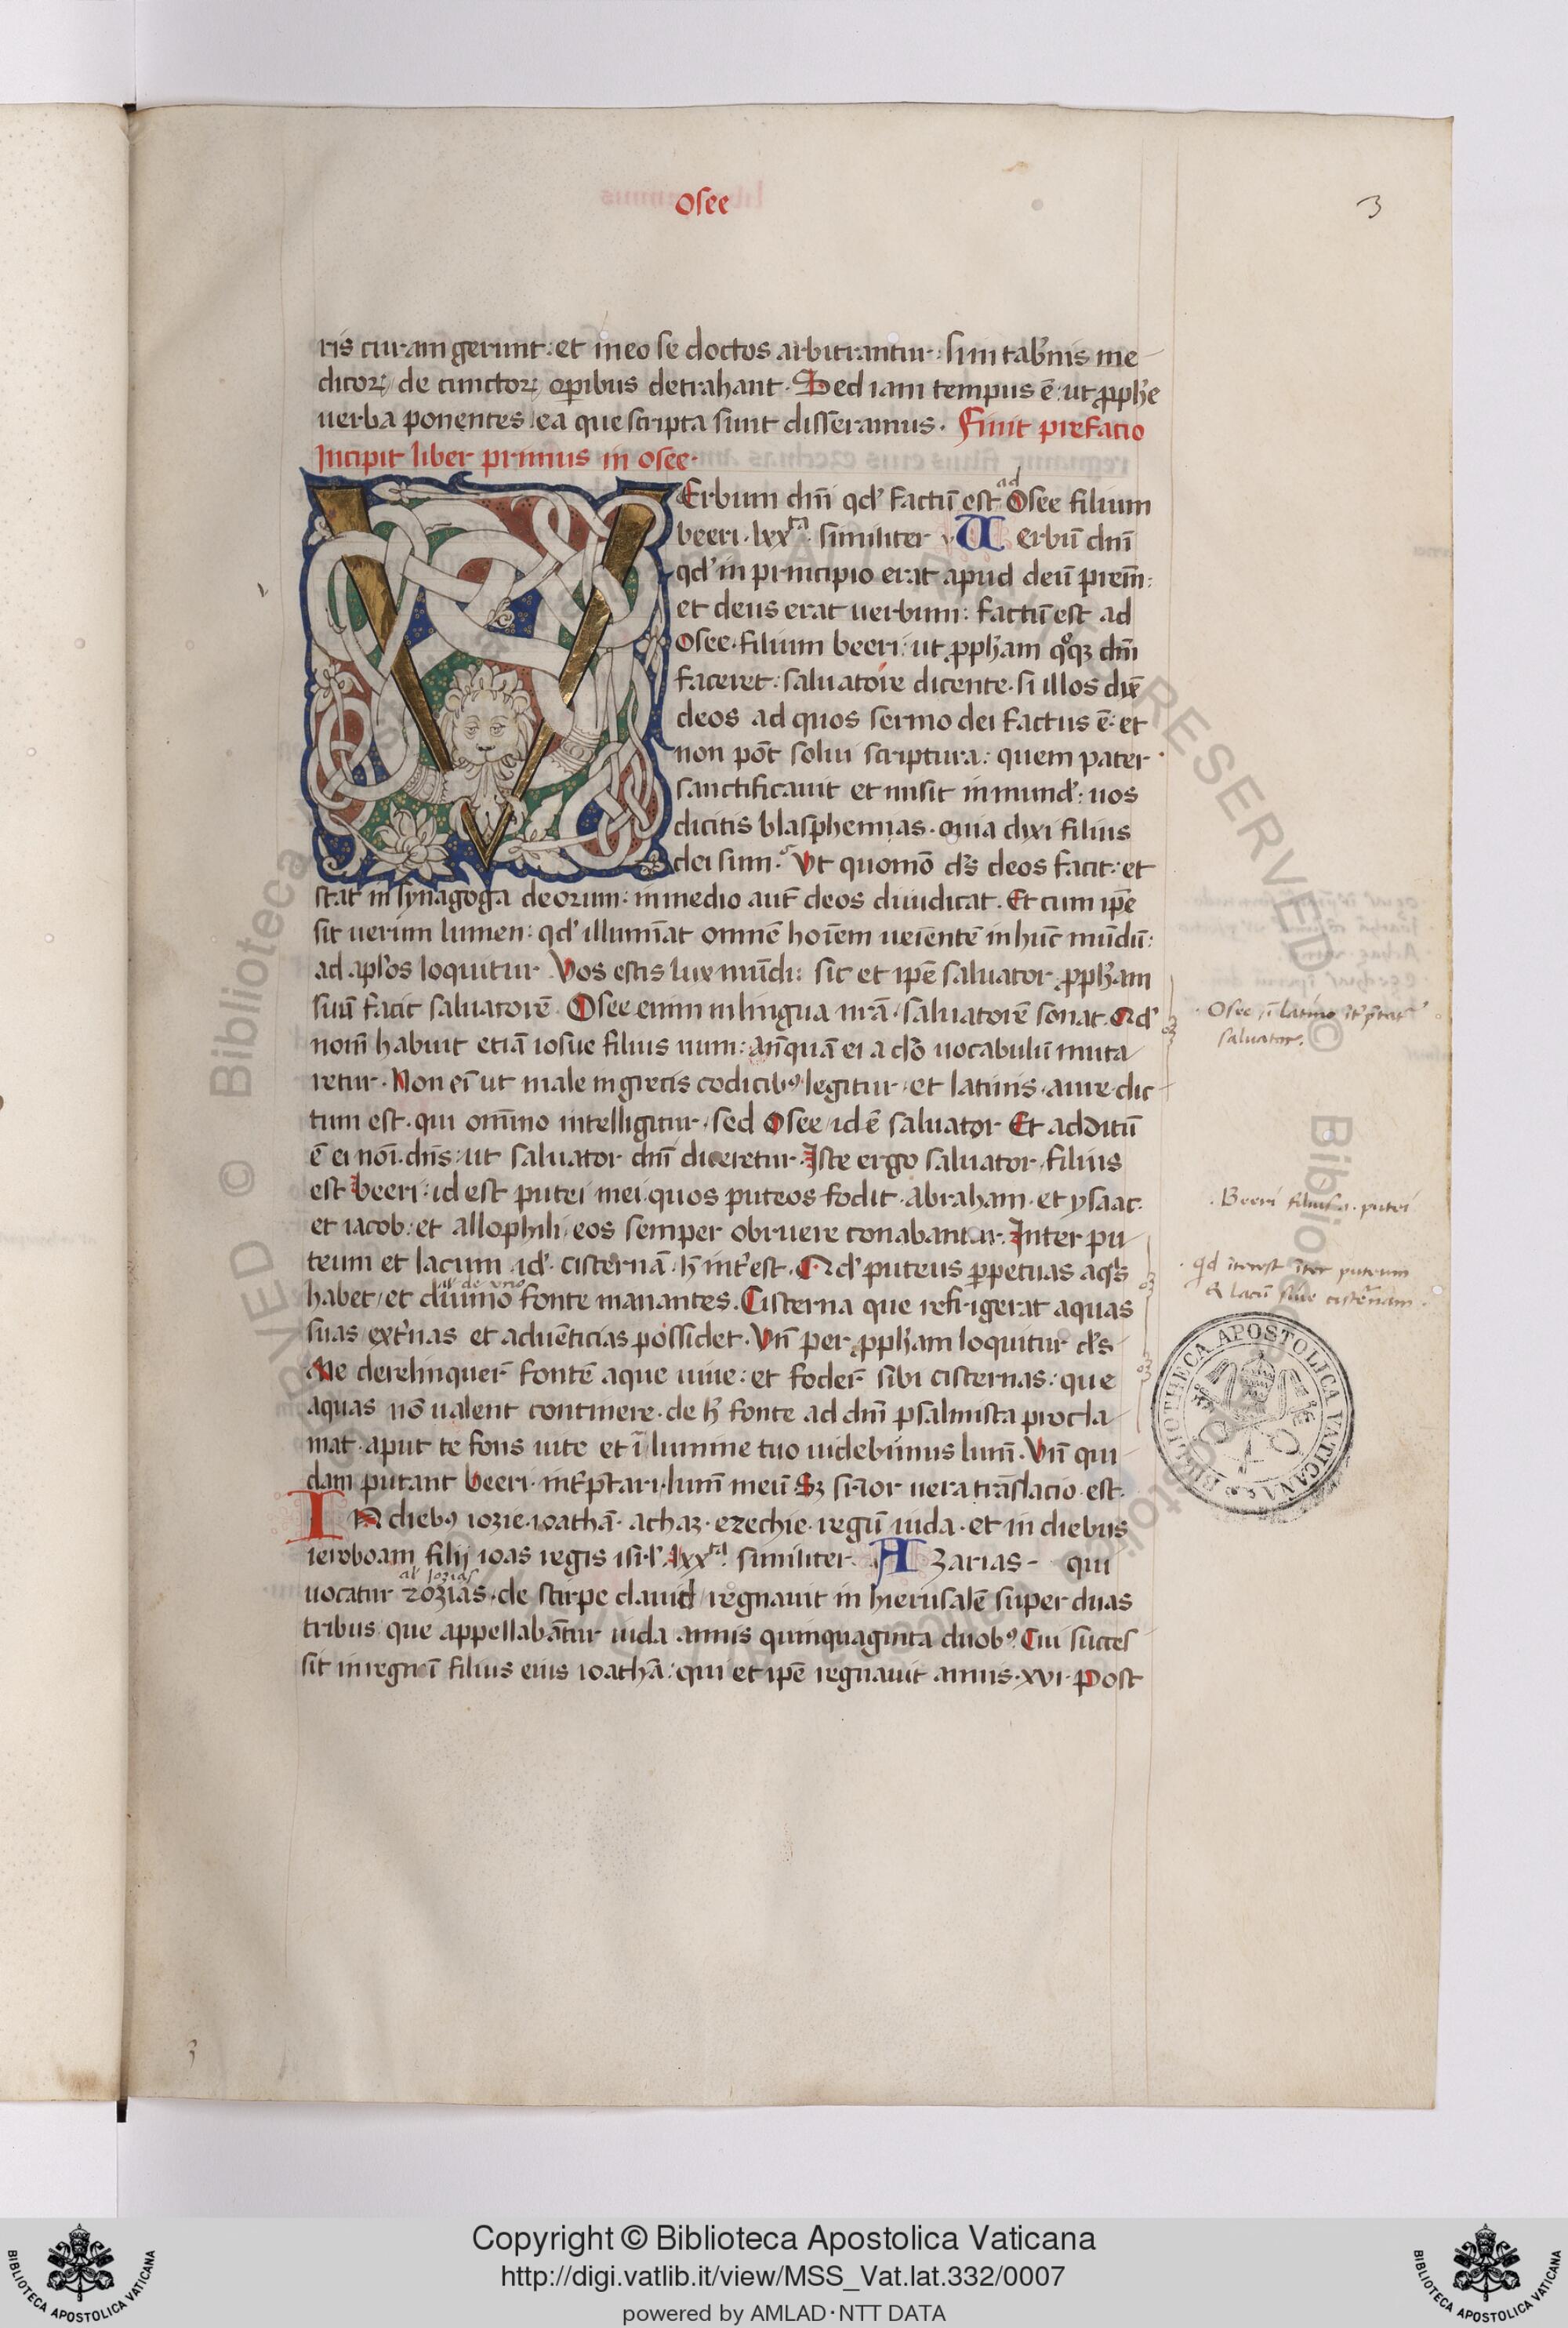 osee
3
ris curam gerunt: et in eo se doctos arbitrantur: si in tab̾nis me
dicoꝝ / de cunctoꝝ oꝑibus detrahant. Sed iam tempus ē: ut ꝓph̾e
uerba ponentes ea que scripta sunt disseramus. Finit prefacio
Incipit liber primus in osee.
VErbum dn̄i qd̾ factū est ad Osee filium
beeri. lxxͭᵃ similiter. Uerbū dn̄i
qd̾ in principio erat apud deū prem̄:
et deus erat uerbum: factū est ad
Osee. filium beeri: ut ꝓph̾am qͦqꝫ dn̄i
faceret: saluatore dicente. si illos dix̄
deos ad quos sermo dei factus ē: et
non pōt solui scriptura: quem pater
sanctificauit et misit in mund̾: uos
dicitis blasphemias. quia dixi filius
dei sum. Vt quomō ds̾ deos facit: et
stat in synagoga deorum: in medio aut̄ deos diiudicat. Et cum ip̄e
sit uerum lumen: qd̾ illumīat omnē hoīem ueientē in hūc mūdū:
ad apl̾os loquitur. Vos estis lux mūdi: sic et ip̄e saluator ꝓph̾am
suū facit saluatorē. Osee enim in lingua nr̄a. saluatorē sonat. Qd̾
nom̄ habuit etiā iosue filius num: an̄quā ei a do̾ uocabulū muta
retur. Non eī ut male in grecis codicibꝰ legitur. et latinis. aure dic
tum est. qui om̄ino intelligitur. sed Osee / id ē saluator. Et additū
ē ei nōi. dn̄s: ut saluator dn̄i diceretur. Iste ergo saluator filius
est Beeri: id est putei mei. quos puteos fodit. abraham. et ysaac.
et iacob: et allophili eos semper obruere conabantur. Inter pu
teum et lacum id̾. cisternā. h̾ int̾est. Qd̾ puteus ꝑpetuas aqͣs
al̾ de uno
habet / et diuino fonte manantes. Cisterna que refrigerat aquas
suas / ext̾nas et aduēticias possidet. Vn̄ per ꝓph̾am loquitur ds̾.
Me derelinquer̄ fontē aque uiue: et foder̄ sibi cisternas: que
aquas nō ualent continere. de h̾ fonte ad dn̄m psalmista procla
mat. aput te fons uite et ī lumine tuo uidebimus lum̄. Vn̄ qui
dam putant beeri. int̾p̄tari. lum̄ meū. Sꝫ suꝑior uera trāslacio est.
IN diebꝰ iozie. ioathā. achaz. ezechie. regū iuda. et in diebus
ieroboam filij ioas regis isr̄l̾. lxxͭᵃ. similiter. Azarias - qui
al̾ Iozias
uocatur zozias. de stirpe dauid / regnauit in hierusalē super duas
tribus que appellabātur iuda annis quinquaginta duobꝰ. Cui succes
sit in regnū filius eius ioathā: qui et ip̄e regnauit annis. xvi. Post
Osee ī latino īt̾p̄tat̾
saluator.
Beeri filius .i. putei
qd īterest īter puteum
& lacū siue cistēnam.
BIBLIOTHECA APOSTOLICA VATICANA
3
Copyright © Biblioteca Apostolica Vaticana
http://digi.vatlib.it/view/MSS_Vat.lat.332/0007
powered by AMLAD·NTT DATA
BIBLIOTECA APOSTOLICA VATICANA
BIBLIOTECA APOSTOLICA VATICANA